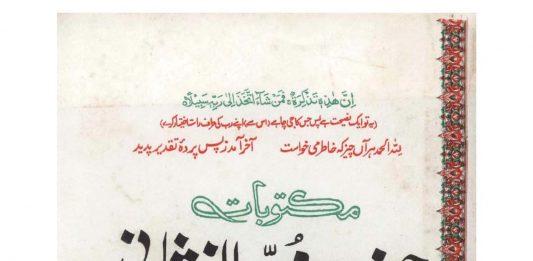 اِنَّ هٰذِهٖ تَذْکِرَۃٌ ۚ فَمَنْ شَآءَ اتَّخَذَ اِلٰی رَبِّهٖ سَبِیْلًاه
(یہ تو ایک نصیحت ہے پس جس کا جی چاہے (اس سے) اپنے رب کی طرف راستہ اختیار کرلے)
للہ الحمد ہر آں چیز کہ خاطر می خواست آخر آمد ز پس پردۂ تقدیر پدید
مکتوبات